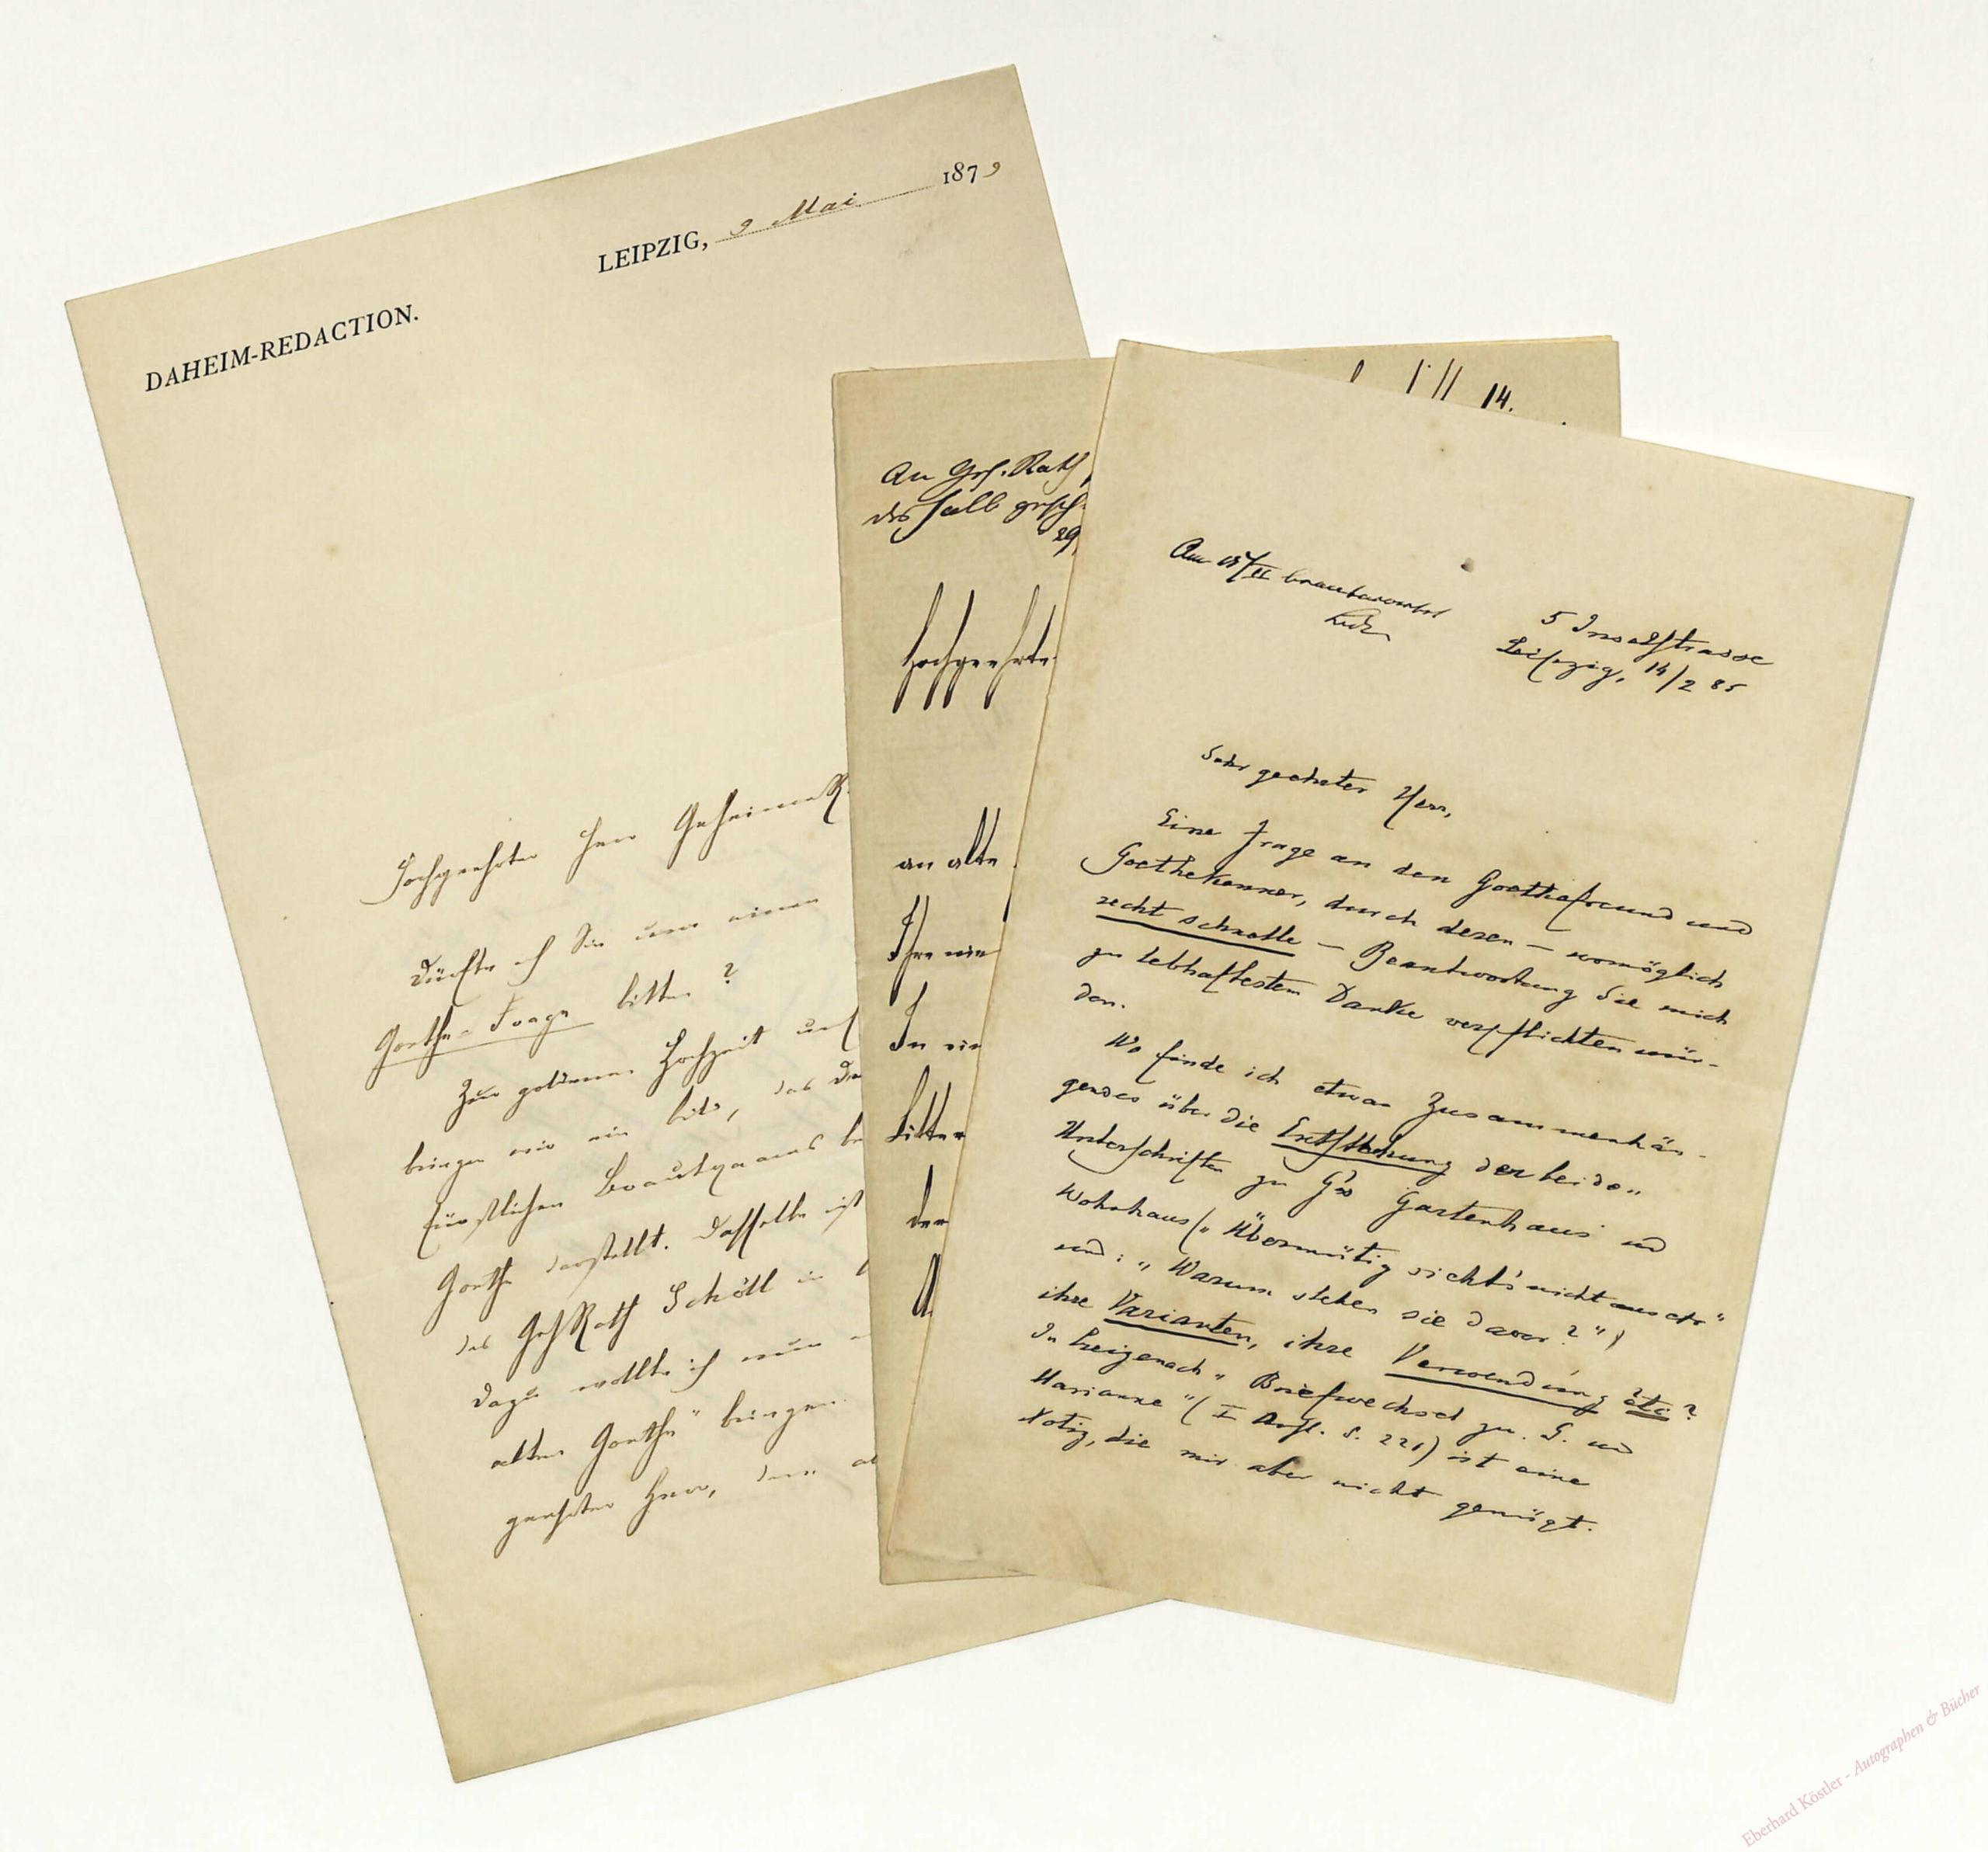 LEIPZIG, 9 Mai 1879
DAHEIM-REDACTION.
Hochgeehrter Herr Geheimer
Dürfte ich Sie um einen
Goethe-Frage bitten?
Zur goldenen Hochzeit
bringen wir ein Bild, das
Fürstlichen Brautpaares
Goethe darstellt. Dasselbe ist
des GehRath Schöll in
Dazu wollte ich nun
alten Goethe" bringen.
geehrter Herr, denn
14.
An Geh. Rath
deshalb gesch.
29
Hochgeehrte
an alte
Ihre
In
bitte
der
Am 15/II beantwortet
5 Inselstrasse
Leipzig, 14/2 85
Sehr geehrter Herr,
Eine Frage an den Goethefreund und
Goethekenner, durch deren – womöglich
recht schnelle – Beantwortung Sie mich
zu lebhaftestem Danke verpflichten wür-
den.
Wo finde ich etwas Zusammenhän-
gendes über die Entstehung der beiden
Unterschriften zu G's Gartenhaus und
Wohnhaus („Übermütig sieht's nicht aus etc"
und: „Warum stehen sie davor?")
ihre Varianten, ihre Verwendung etc?
In Creizenach „Briefwechsel zw. G. und
Marianne" (I Aufl. S. 221) ist eine
Notiz, die mir aber nicht genügt.
Eberhard Köstler - Autographen & Bücher